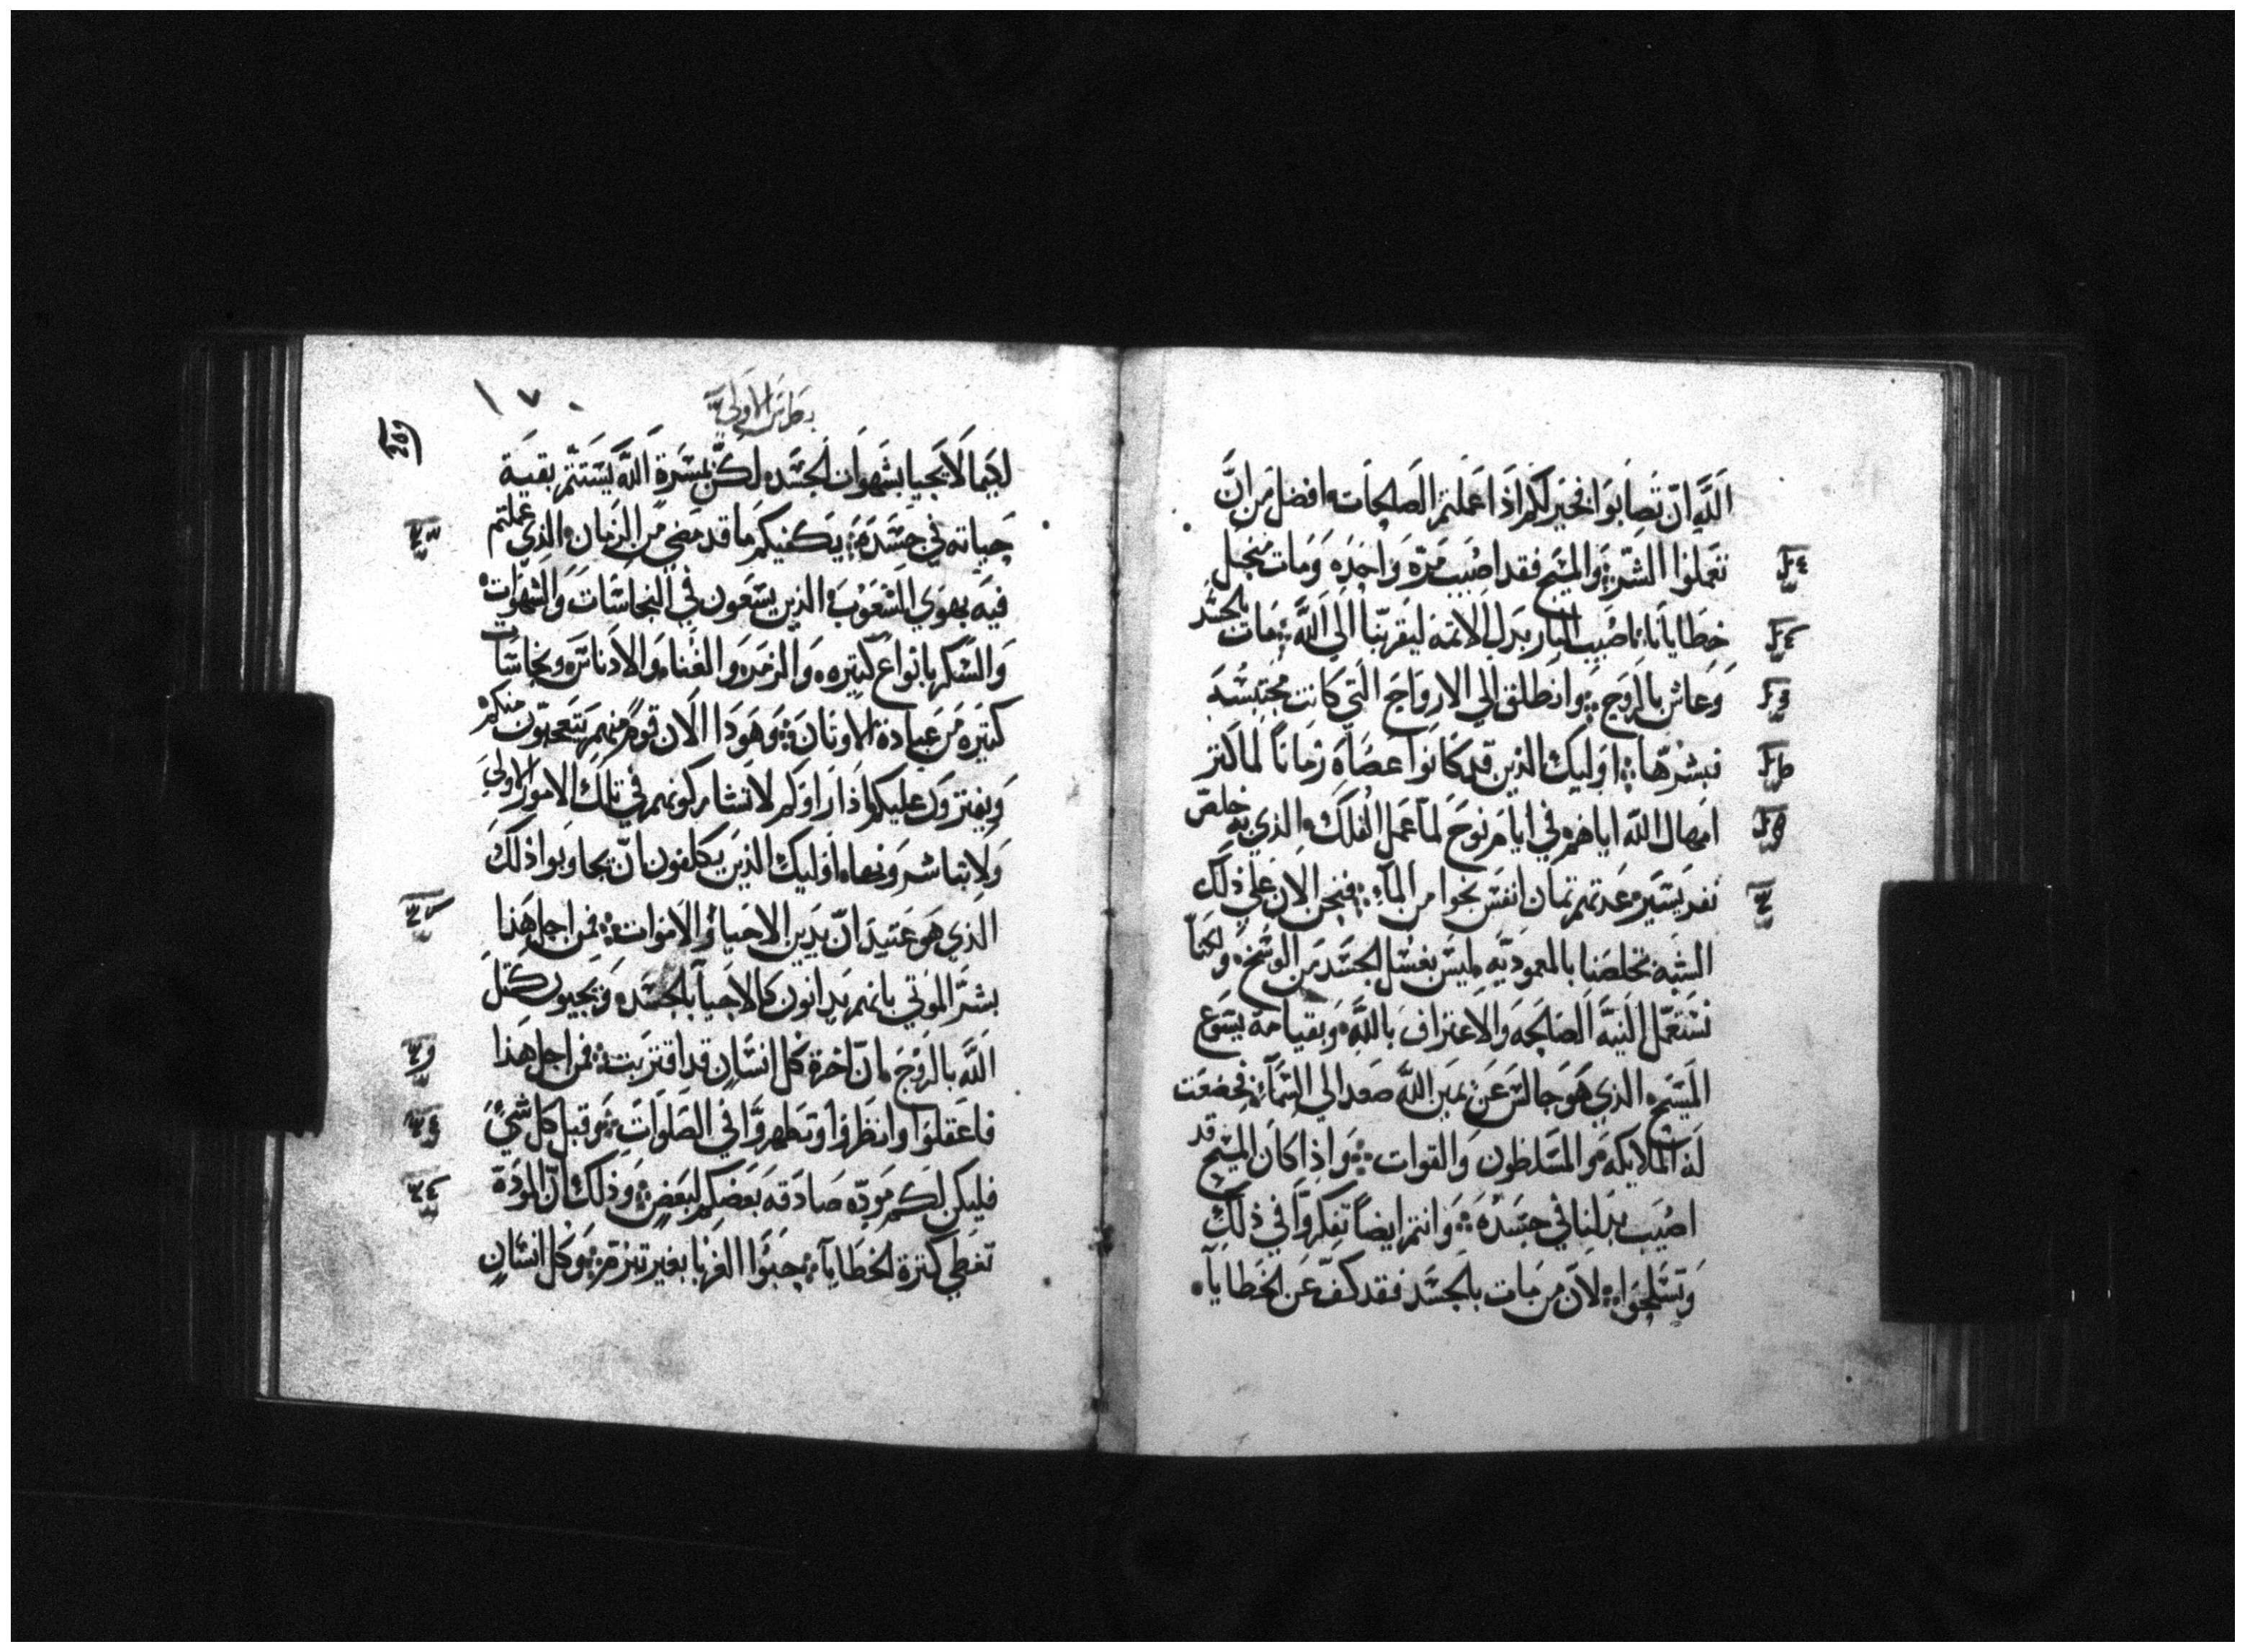 الله ان تصابوا فخير لكم اذا عملتم الصالحات افضل من ان
تعملوا الشر والمسيح فقد اصيب مرة واحده ومات من اجل
خطايانا اصيب البار بدل الاثمه ليقربنا الي الله مات بالجسد
وعاش بالروح وانطلق الي الارواح التي كانت محتبسه
فبشرها اوليك الذين قد كانوا عصاه زمانا لما كثر
امهال الله اياهم في ايام نوح لما عمل الفلك الذي به خلص
نفر يسير عدتهم ثمان انفس نجوا من الماء فنحن الان علي ذلك
الشبه تخلصنا بالمعوديه ليس بغسل الجسد من الوسخ ولكنا
نستعمل النيه الصالحه والاعتراف بالله وبقيامة يسوع
المسيح الذي هو جالس عن يمين الله صعد الي السماء فخضعت
له الملايكه والمسلطون والقوات واذا كان المسيح قد
اصيب بدلنا في جسده وانتم ايضاً تفكروا في ذلك
وتسلحوا لان من مات بالجسد فقد كف عن الخطايا
بطرس الاولي
١٧٠
لكيما لا يحيا بشهوات الجسد لكن بمسرة الله يستتم بقية
حياته في جسده يكفيكم ما قد مضي من الزمان الذي عملتم
فيه بهوي الشعوب الذين يسعون في النجاسات والشهوات
والسكر بانواع كثيره والزمر والغناء والادناس ونجاسات
كثيره من عبادة الاوثان وهوذا الان قوم منهم يتعجبون منكم
ويفترون عليكم اذا راوكم لا تشاركونهم في تلك الامور الاولي
ولا تباشرونها اوليك الذين يكلفون ان يجاوبوا ذلك
الذي هو عتيد ان يدين الاحياء والاموات فمن اجل هذا
بشر الموتي بانهم يدانون كالاحيا بالجسد ويحيون كمثل
الله بالروح ان اخرة كل انسان قد اقتربت فمن اجل هذا
فاعقلوا وانظروا وتطهروا في الصلوات وقبل كل شي
فليكن لكم موده صادقه بعضكم لبعض وذلك ان المودة
تغطي كثرة الخطايا حبوا الغربا بغير تبرم وكل انسان